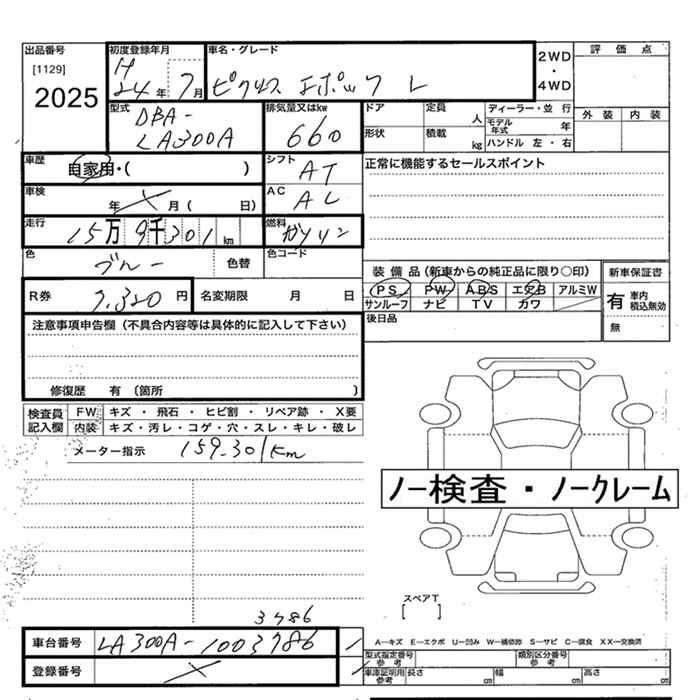 出品番号 初度登録年月 車名・グレード 2WD・4WD 評価点
[1129] H
2025 24年 7月 ピクシス エポック L
型式 排気量又はkw ドア 定員 人 ディーラー・並行 外装 内装
DBA- モデル年式 年
LA300A 660 形状 積載 kg ハンドル 左・右
車歴 自家用・( ) シフト AT 正常に機能するセールスポイント
車検 年 月 ( 日) AC AC
走行 15万 9千301 km 燃料 ガソリン
色 ブルー 色替 色コード
装備品(新車からの純正品に限り○印) 新車保証書
R券 7,320円 名変期限 月 日 PS PW ABS エアB アルミW 有 車内 積込無効
サンルーフ ナビ TV カワ
注意事項申告欄(不具合内容等は具体的に記入して下さい) 後日品 無
修復歴 有 (箇所 )
検査員 FW キズ・飛石・ヒビ割・リペア跡・X要
記入欄 内装 キズ・汚レ・コゲ・穴・スレ・キレ・破レ
メーター指示 159,301km
ノー検査・ノークレーム
スペアT
[ ]
3786
車台番号 LA300A-1003786
A―キズ E―エクボ U―凹み W―補修跡 S―サビ C―腐食 XX―交換済
型式指定番号 参考 類別区分番号 参考
登録番号
車庫証明用 参考 長さ cm 幅 cm 高さ cm